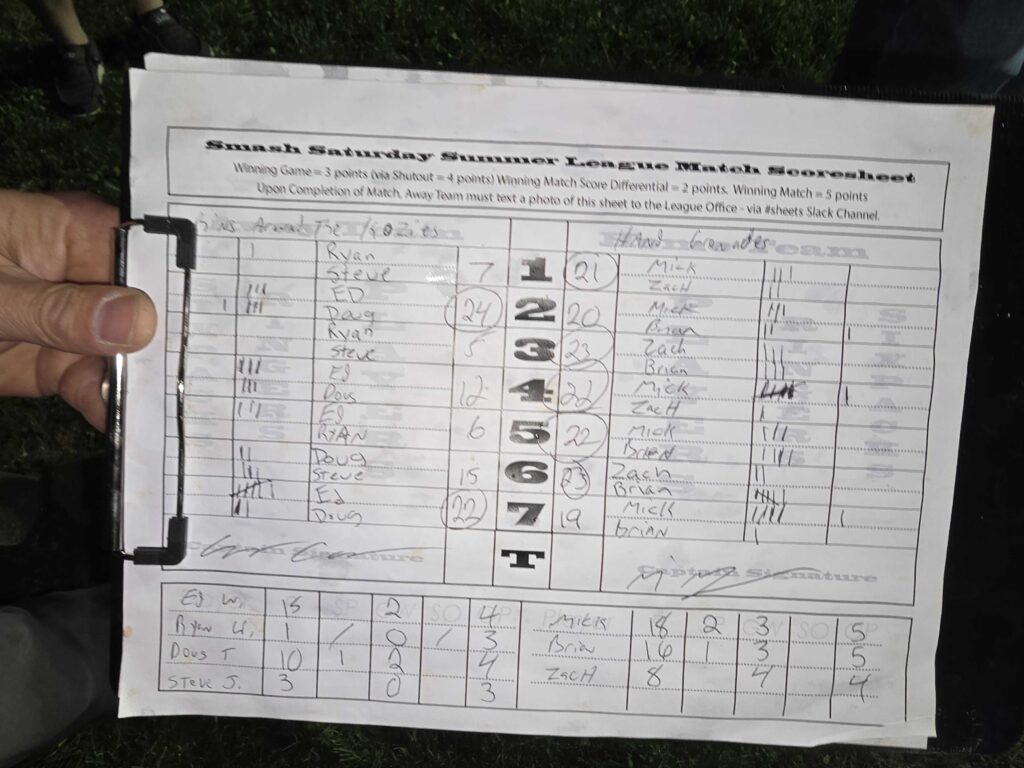 Smash Saturday Summer League Match Scoresheet
Winning Game = 3 points (via Shutout = 4 points) Winning Match Score Differential = 2 points. Winning Match = 5 points
Upon Completion of Match, Away Team must text a photo of this sheet to the League Office - via #sheets Slack Channel.
Hand Grenades
Ryan 7 1 21 Mick
Steve Zach
ED 24 2 20 Mick
Doug Brian
Ryan 5 3 23 Zach
Steve Brian
Ed 12 4 22 Mick
Doug Zach
Ed 6 5 22 Mick
RYAN Brian
Doug 15 6 23 Zach
Steve Brian
Ed 22 7 19 Mick
Doug brian
T
Captain Signature
Ed W. 2 4 Mick 18 2 3 5
Ryan 1 0 3 Brian 16 1 3 5
Doug T 10 1 2 4 ZacH 8 4 4
Steve J. 3 0 3